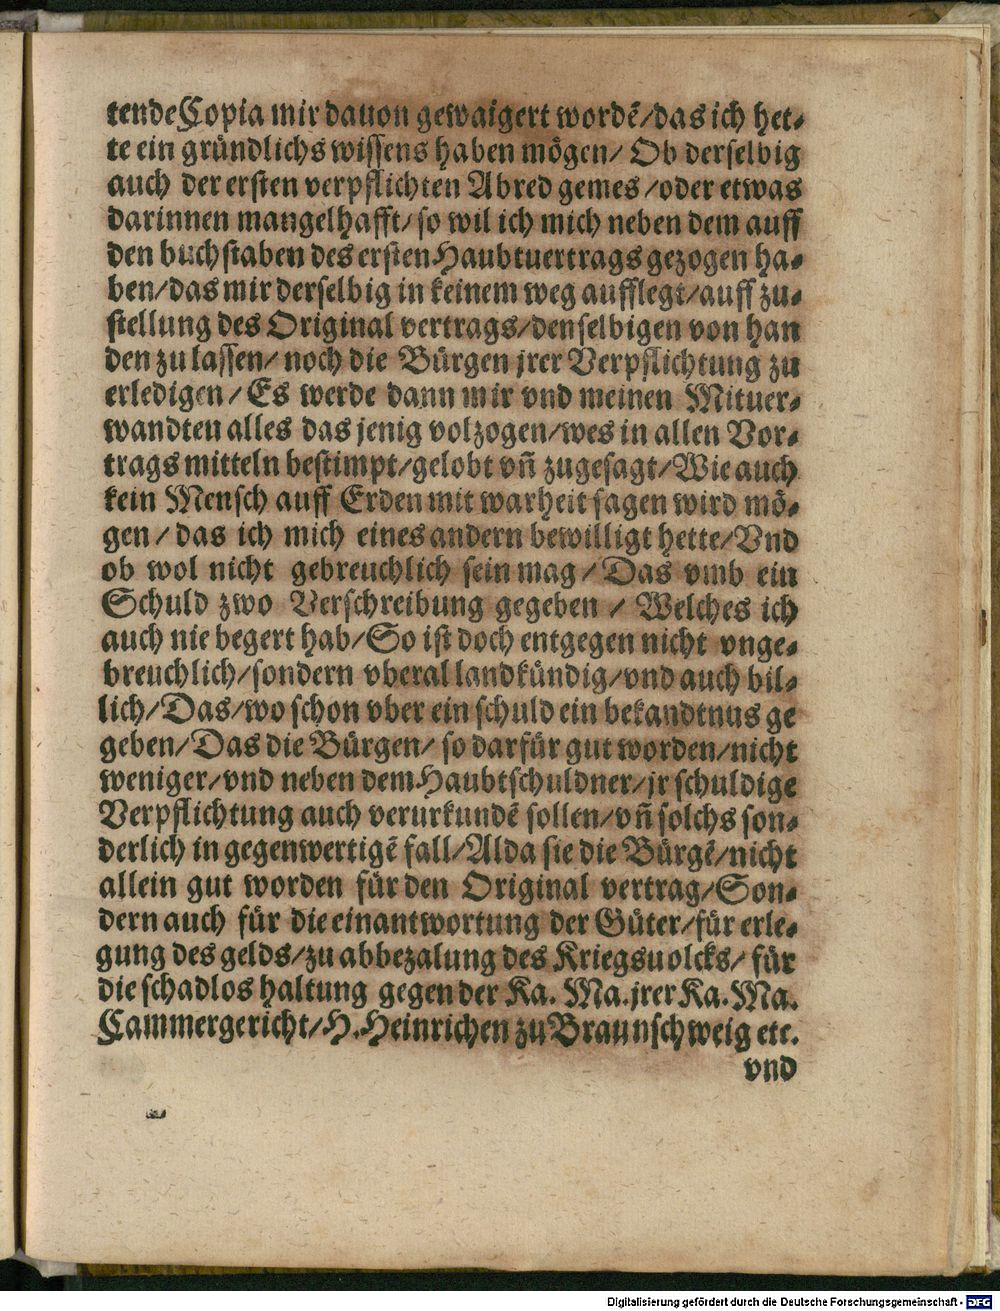 tende Copia mir dauon gewaigert wordē/das ich het-
te ein gründlichs wissens haben mögen/ Ob derselbig
auch der ersten verpflichten Abred gemes/oder etwas
darinnen mangelhafft/so wil ich mich neben dem auff
den buchstaben des ersten Haubtuertrags gezogen ha-
ben/das mir derselbig in keinem weg aufflegt/auff zu-
stellung des Original vertrags/denselbigen von han
den zu lassen/ noch die Bürgen jrer Verpflichtung zu
erledigen/ Es werde dann mir vnd meinen Mituer-
wandten alles das jenig volzogen/wes in allen Vor-
trags mitteln bestimpt/gelobt vñ zugesagt/Wie auch
kein Mensch auff Erden mit warheit sagen wird mö-
gen/ das ich mich eines andern bewilligt hette/Vnd
ob wol nicht gebreuchlich sein mag/ Das vmb ein
Schuld zwo Verschreibung gegeben / Welches ich
auch nie begert hab/So ist doch entgegen nicht vnge-
breuchlich/sondern vberal landkündig/vnd auch bil-
lich/Das/wo schon vber ein schuld ein bekandtnus ge
geben/Das die Bürgen/ so darfür gut worden/nicht
weniger/vnd neben dem Haubtschuldner/jr schuldige
Verpflichtung auch verurkundē sollen/vñ solchs son-
derlich in gegenwertigē fall/Alda sie die Bürgē/nicht
allein gut worden für den Original vertrag/Son-
dern auch für die einantwortung der Güter/für erle-
gung des gelds/zu abbezalung des Kriegsuolcks/ für
die schadlos haltung gegen der Ka. Ma. jrer Ka. Ma.
Cammergericht/H. Heinrichen zu Braunschweig etc.
vnd
Digitalisierung gefördert durch die Deutsche Forschungsgemeinschaft - DFG